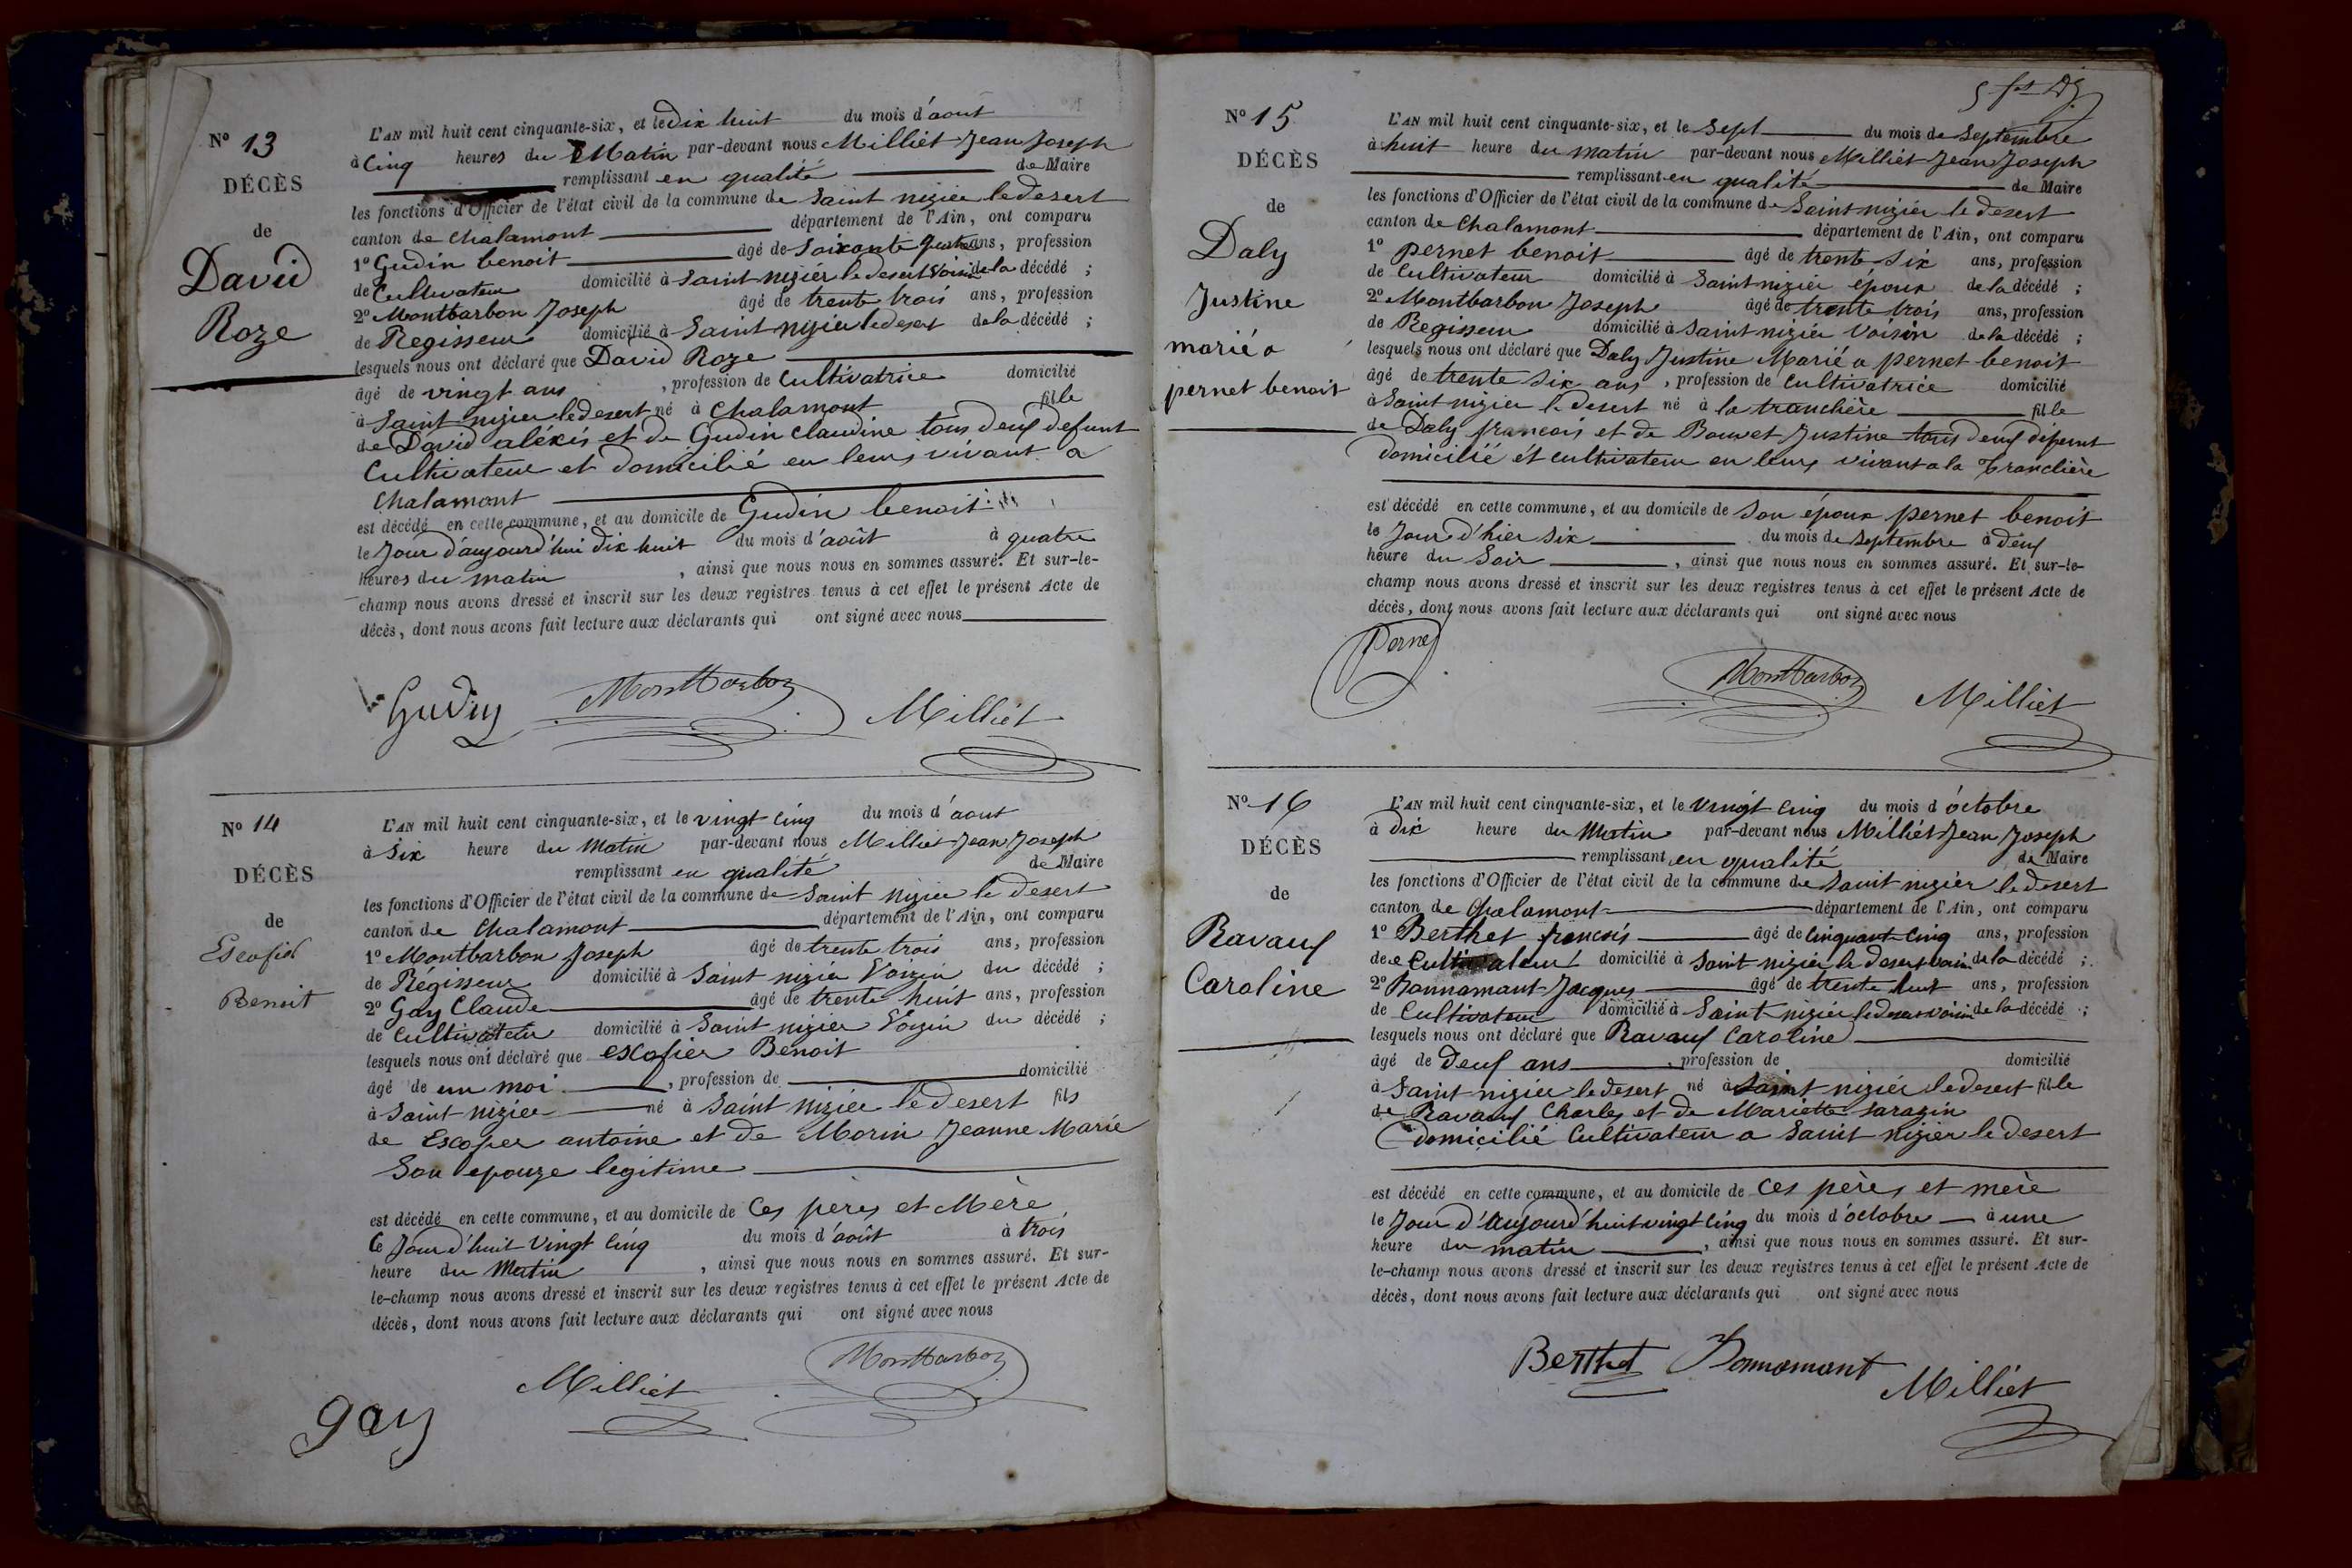 N° 13
DÉCÈS
de
David
Roze
L'AN mil huit cent cinquante-six, et le dix huit du mois d'août
à Cinq heures du Matin par-devant nous Milliet Jean Joseph
remplissant en qualité de Maire
les fonctions d'Officier de l'état civil de la commune de Saint nizier le desert
canton de Chalamont département de l'Ain, ont comparu
1° Gudin benoit âgé de Soixante ans, profession
de Cultivateur domicilié à Saint nizier le desert voisin de la décédé ;
2° Montbarbon Joseph âgé de trente trois ans, profession
de Regisseur domicilié à Saint nizier le desert de la décédé ;
lesquels nous ont déclaré que David Roze
âgé de vingt ans, profession de Cultivatrice domicilié
à Saint nizier le desert né à Chalamont fille
de David aléxis et de Gudin Claudine tous deux defunt
Cultivateur et domicilié en leurs vivant a
Chalamont
est décédé en cette commune, et au domicile de Gudin benoit
le Jour d'aujourd'hui dix huit du mois d'août à quatre
heures du matin, ainsi que nous nous en sommes assuré. Et sur-le-
champ nous avons dressé et inscrit sur les deux registres tenus à cet effet le présent Acte de
décès, dont nous avons fait lecture aux déclarants qui ont signé avec nous
Gudin Montbarbon Milliet
N° 14
DÉCÈS
de
Escofié
Benoit
L'AN mil huit cent cinquante-six, et le vingt cinq du mois d'aout
à Six heure du Matin par-devant nous Milliet Jean Joseph
remplissant en qualité de Maire
les fonctions d'Officier de l'état civil de la commune de Saint nizier le desert
canton de Chalamont département de l'Ain, ont comparu
1° Montbarbon Joseph âgé de trente trois ans, profession
de Régisseur domicilié à Saint nizier Voizin du décédé ;
2° Gay Claude âgé de trente huit ans, profession
de Cultivateur domicilié à Saint nizier Voizin du décédé ;
lesquels nous ont déclaré que escofier Benoit
âgé de un moi, profession de domicilié
à Saint nizier né à Saint nizier le desert fils
de Escofier antoine et de Morin Jeanne Marie
Son epouze legitime
est décédé en cette commune, et au domicile de Ces pères et Mère
Ce Jour d'huit Vingt Cinq du mois d'août à trois
heure du Matin, ainsi que nous nous en sommes assuré. Et sur-
le-champ nous avons dressé et inscrit sur les deux registres tenus à cet effet le présent Acte de
décès, dont nous avons fait lecture aux déclarants qui ont signé avec nous
Milliet Montbarbon
gay
N° 15
DÉCÈS
de
Daly
Justine
marié a
pernet benoit
L'AN mil huit cent cinquante-six, et le Sept du mois de Septembre
à huit heure du matin par-devant nous Milliet Jean Joseph
remplissant en qualité de Maire
les fonctions d'Officier de l'état civil de la commune de Saint nizier le desert
canton de Chalamont département de l'Ain, ont comparu
1° pernet benoit âgé de trente six ans, profession
de Cultivateur domicilié à Saint nizier époux de la décédé ;
2° Montbarbon Joseph âgé de trente trois ans, profession
de Regisseur domicilié à Saint nizier Voisin de la décédé ;
lesquels nous ont déclaré que Daly Justine Marié a pernet benoit
âgé de trente six ans, profession de Cultivatrice domicilié
à Saint nizier le desert né à la tranclière fille
de Daly francois et de Bouvet Justine tous deux défunt
domicilié et cultivateur en leurs vivant a la Tranclière
est décédé en cette commune, et au domicile de Son époux pernet benoit
le Jour d'hier six du mois de Septembre à deux
heure du Soir, ainsi que nous nous en sommes assuré. Et sur-le-
champ nous avons dressé et inscrit sur les deux registres tenus à cet effet le présent Acte de
décès, dont nous avons fait lecture aux déclarants qui ont signé avec nous
Pernet
Montbarbon Milliet
N° 16
DÉCÈS
de
Ravaux
Caroline
L'AN mil huit cent cinquante-six, et le Vingt Cinq du mois d'octobre
à dix heure du Matin par-devant nous Milliet Jean Joseph
remplissant en qualité de Maire
les fonctions d'Officier de l'état civil de la commune de Saint nizier le desert
canton de Chalamont département de l'Ain, ont comparu
1° Berthet francois âgé de Cinquante Cinq ans, profession
de Cultivateur domicilié à Saint nizier le desert voisin de la décédé ;
2° Bonnamant Jacques âgé de trente huit ans, profession
de Cultivateur domicilié à Saint nizier le desert voisin de la décédé ;
lesquels nous ont déclaré que Ravaux Caroline
âgé de Deux ans, profession de domicilié
à Saint nizier le desert né à Saint nizier le desert fille
de Ravaux Charles et de Mariette Sarazin
domicilié Cultivateur a Saint nizier le desert
est décédé en cette commune, et au domicile de Ces pères et mère
le Jour d'Aujourd'huit vingt Cinq du mois d'octobre à une
heure du matin, ainsi que nous nous en sommes assuré. Et sur-
le-champ nous avons dressé et inscrit sur les deux registres tenus à cet effet le présent Acte de
décès, dont nous avons fait lecture aux déclarants qui ont signé avec nous
Berthet Bonnamant Milliet